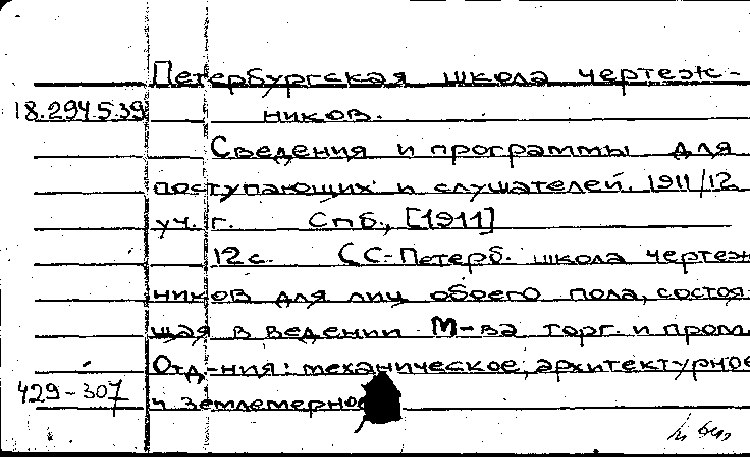 Петербургская школа чертеж-
18.294.5.39 ников.
Сведения и программы для
поступающих и слушателей. 1911/12
уч. г. Спб., [1911]
12 с. (С.-Петерб. школа чертеж
ников для лиц обоего пола, состоя-
щая в ведении М-ва торг. и пром.
Отд-ния: механическое, архитектурное
429-307 и землемерное